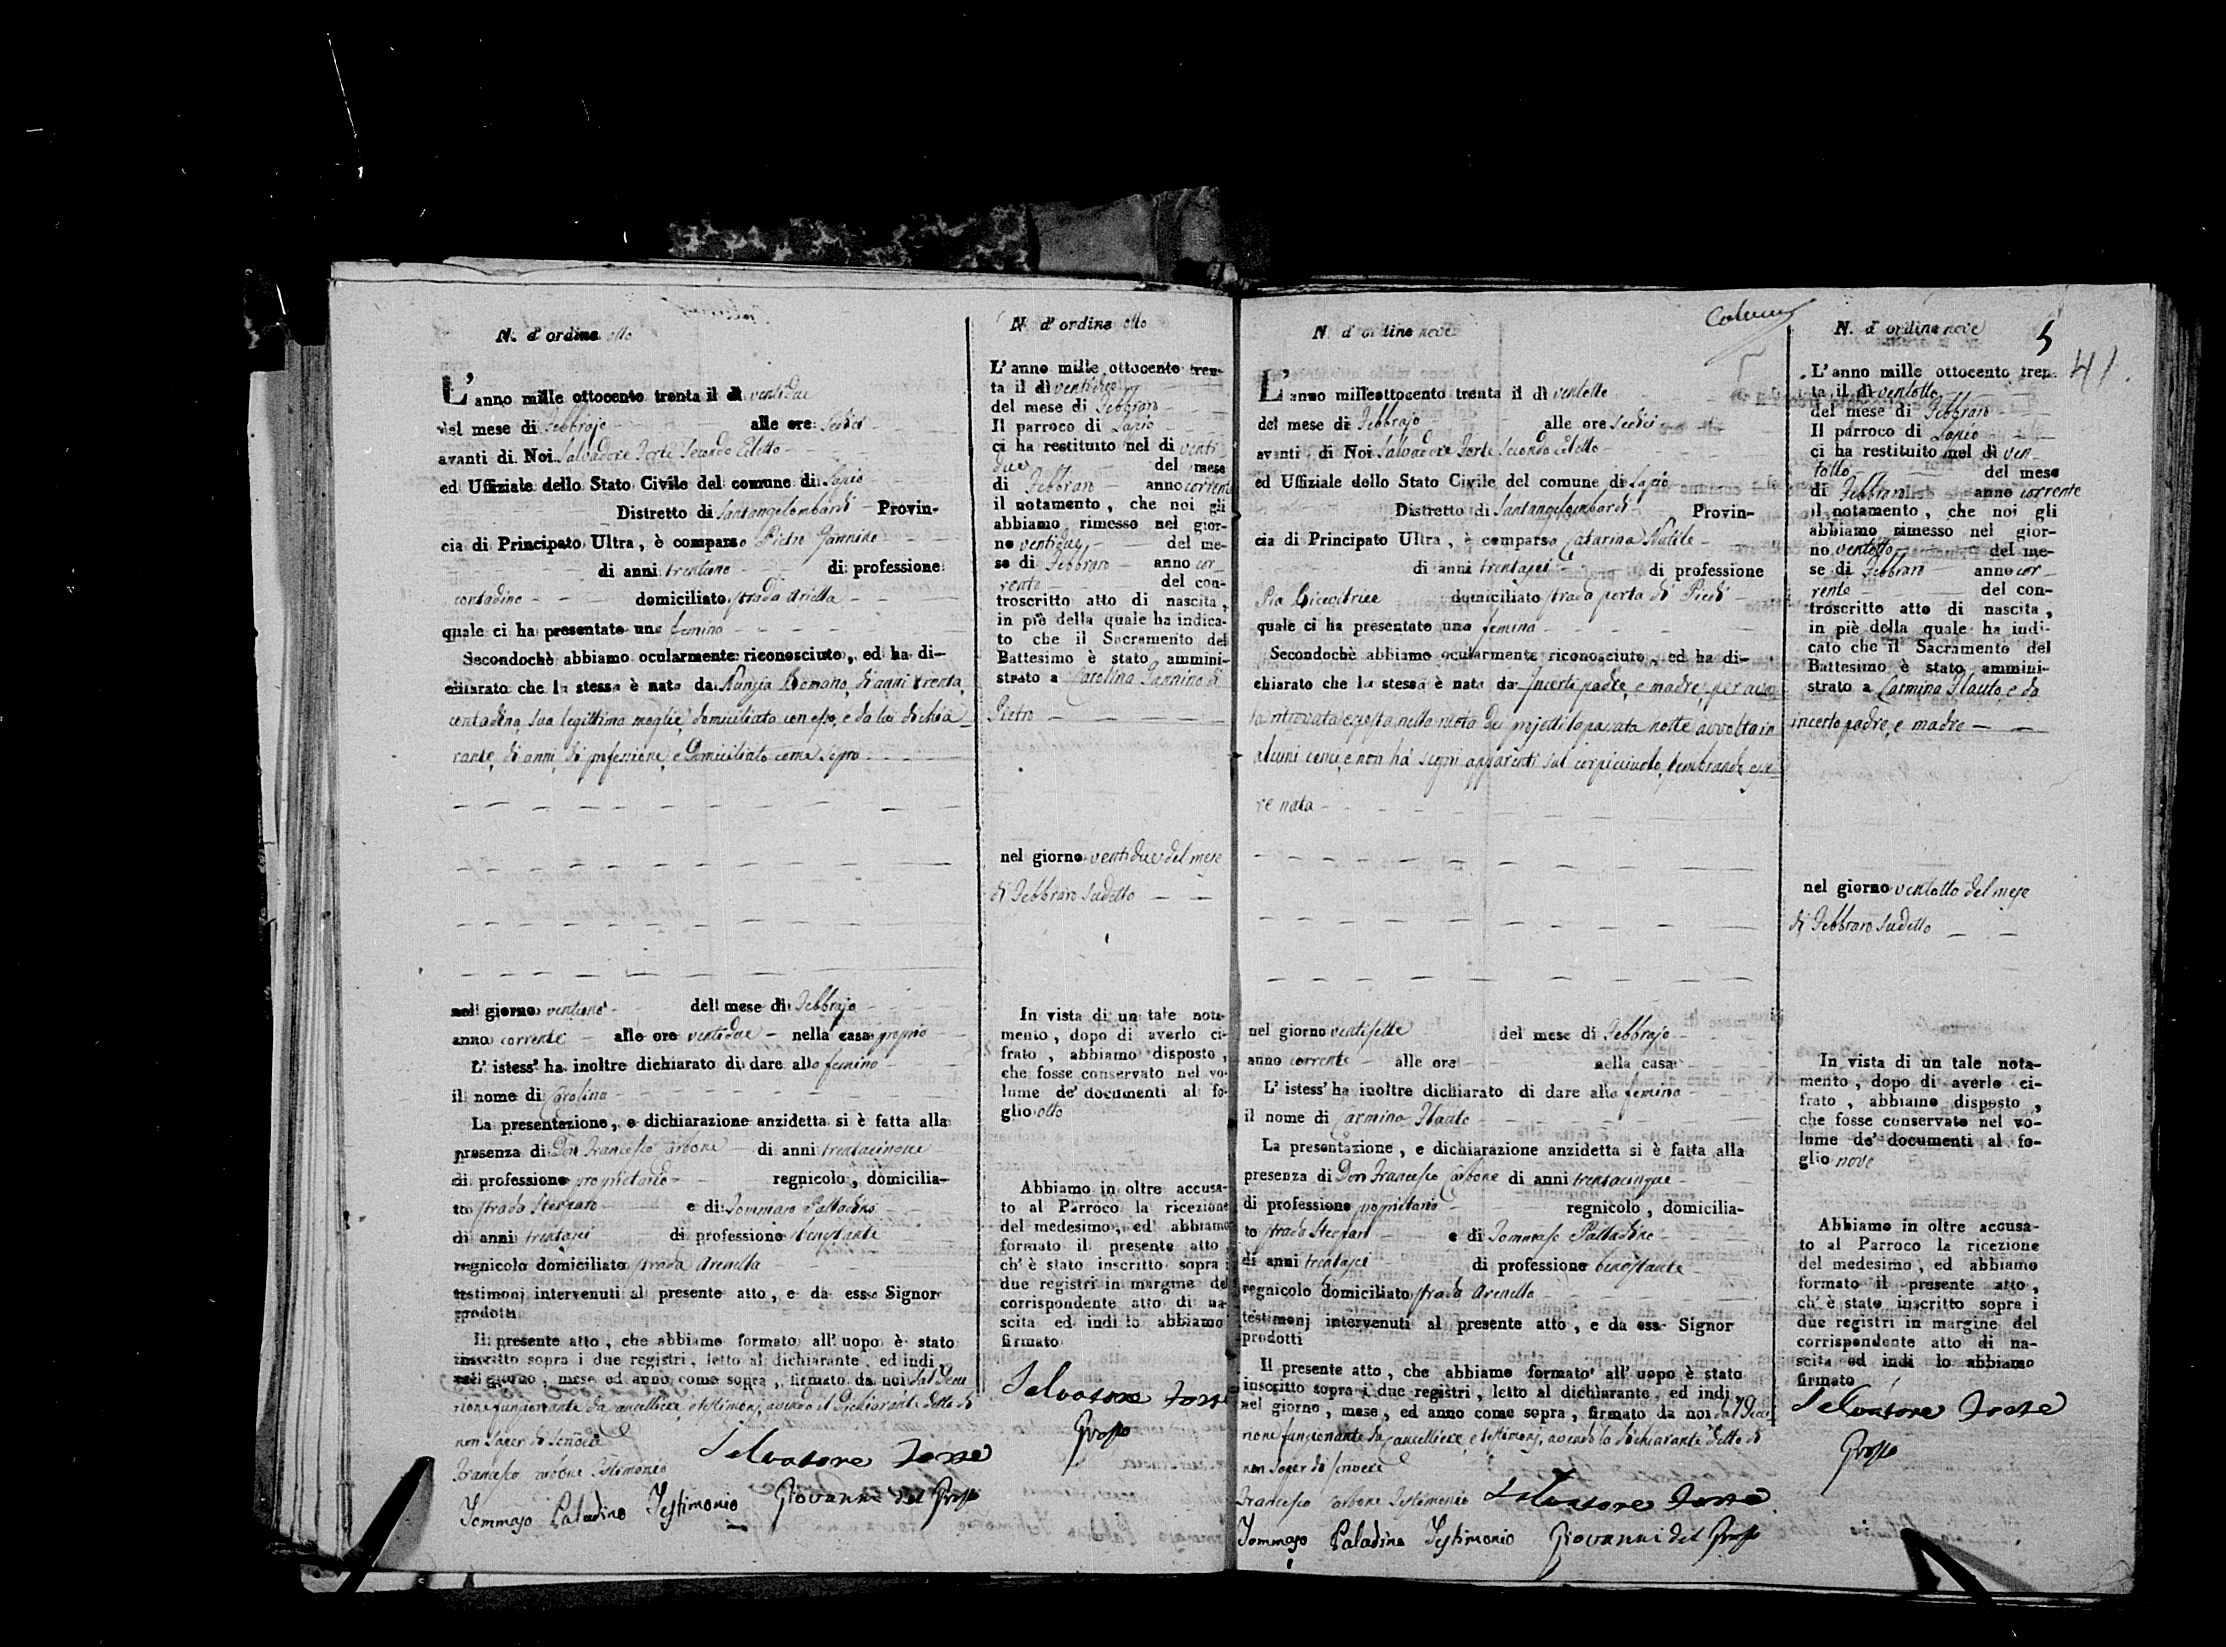 N. d' ordine otto
L' anno mille ottocento trenta il di ventidue
del mese di Febbrajo alle ore Sedici
avanti di Noi Salvadore Forte Secondo Eletto
ed Uffiziale dello Stato Civile del comune di Lapio
Distretto di Santangelombardi Provin-
cia di Principato Ultra, è comparso Pietro Jannino
di anni trentuno di professione
contadino domiciliato strada Ariella
quale ci ha presentato una femina
Secondochè abbiamo ocularmente riconosciuto, ed ha di-
chiarato che la stessa è nata da Nunzia Romano, di anni trenta,
contadina, sua legittima moglie, domiciliata con esso, e da lui dichia-
rante, di anni, di professione, e Domiciliato come sopra
nel giorno ventuno del mese di Febbrajo
anno corrente alle ore ventidue nella casa propria
L' istess' ha inoltre dichiarato di dare alla femina
il nome di Carolina
La presentazione, e dichiarazione anzidetta si è fatta alla
presenza di Don Francesco Carbone di anni trentacinque
di professione proprietario regnicolo, domicilia-
to strada e di Tommaso Palladino
di anni trentasei di professione benestante
regnicolo domiciliato strada Arenella
testimonj intervenuti al presente atto, e da esso Signor
prodotti
Il presente atto, che abbiamo formato all' uopo è stato
inscritto sopra i due registri, letto al dichiarante, ed indi
nel giorno, mese ed anno come sopra, firmato da noi dal Decu
rione funzionante da cancelliere, e testimonj, avendo il Dichiarante detto di
non saper di scrivere
Francesco Carbone Testimonio
Salvatore Forte
Tommaso Paladino Testimonio Giovanni del Grosso
N. d' ordine otto
L' anno mille ottocento tren-
ta il dì ventidue
del mese di Febbraro
Il parroco di Lapio
ci ha restituto nel dì venti
due del mese
di Febbraro anno corrente
il notamento, che noi gli
abbiamo rimesso nel gior-
no ventidue del me-
se di Febbraro anno cor-
rente del con-
troscritto atto di nascita,
in piè della quale ha indica-
to che il Sacramento del
Battesimo è stato ammini-
strato a Carolina Jannino di
Pietro
nel giorno ventidue del mese
di Febbraro sudetto
In vista di un tale nota-
mento, dopo di averlo ci-
frato, abbiamo disposto,
che fosse conservato nel vo-
lume de' documenti al fo-
glio otto
Abbiamo in oltre accusa-
to al Parroco la ricezione
del medesimo, ed abbiamo
formato il presente atto
ch' è stato inscritto sopra i
due registri in margine del
corrispondente atto di na-
scita ed indi lo abbiamo
firmato
Salvatore Forte
Grosso
N. d' ordine nove
L' anno milleottocento trenta il dì ventotto
del mese di Febbrajo alle ore Sedici
avanti di Noi Salvadore Forte Secondo Eletto
ed Uffiziale dello Stato Civile del comune di Lapio
Distretto di Santangelombardi Provin-
cia di Principato Ultra, è comparso Catarina Nutile
di anni trentasei di professione
Pia Ricevitrice domiciliato strada porta di Piedi
quale ci ha presentato una femina
Secondochè abbiamo ocularmente riconosciuto, ed ha di-
chiarato che la stessa è nata da Incerti padre, e madre, per aver
la ritrovata esposta nella ruota de' projetti la passata notte avvolta in
alcuni cenci, e non ha segni apparenti sul corpicciuolo, sembrando esse-
re nata
nel giorno ventisette del mese di Febbrajo
anno corrente alle ore nella casa
L' istess' ha inoltre dichiarato di dare alla femina
il nome di Carmina Flauto
La presentazione, e dichiarazione anzidetta si è fatta alla
presenza di Don Francesco Carbone di anni trentacinque
di professione proprietario regnicolo, domicilia-
to strada e di Tommaso Palladino
di anni trentasei di professione benestante
regnicolo domiciliato strada Arenella
testimonj intervenuti al presente atto, e da esso Signor
prodotti
Il presente atto, che abbiamo formato all' uopo è stato
inscritto sopra i due registri, letto al dichiarante, ed indi
nel giorno, mese, ed anno come sopra, firmato da noi dal Decu
rione funzionante da Cancelliere, e testimonj, avendo la dichiarante detto di
non saper di scrivere
Francesco Carbone Testimonio Salvatore Forte
Tommaso Paladino Testimonio Giovanni del Grosso
N. d' ordine nove
5
41.
L' anno mille ottocento tren-
ta il dì ventotto
del mese di Febbraro
Il parroco di Lapio
ci ha restituito nel dì ven-
totto del mese
di Febbraro anno corrente
il notamento, che noi gli
abbiamo rimesso nel gior-
no ventotto del me-
se di Febbraro anno cor-
rente del con-
troscritto atto di nascita,
in piè della quale ha indi-
cato che il Sacramento del
Battesimo è stato ammini-
strato a Carmina Flauto e da
incerto padre, e madre
nel giorno ventotto del mese
di Febbraro sudetto
In vista di un tale nota-
mento, dopo di averlo ci-
frato, abbiamo disposto,
che fosse conservato nel vo-
lume de' documenti al fo-
glio nove
Abbiamo in oltre accusa-
to al Parroco la ricezione
del medesimo, ed abbiamo
formato il presente atto,
ch' è stato inscritto sopra i
due registri in margine del
corrispondente atto di na-
scita ed indi lo abbiamo
firmato
Salvatore Forte
Grosso